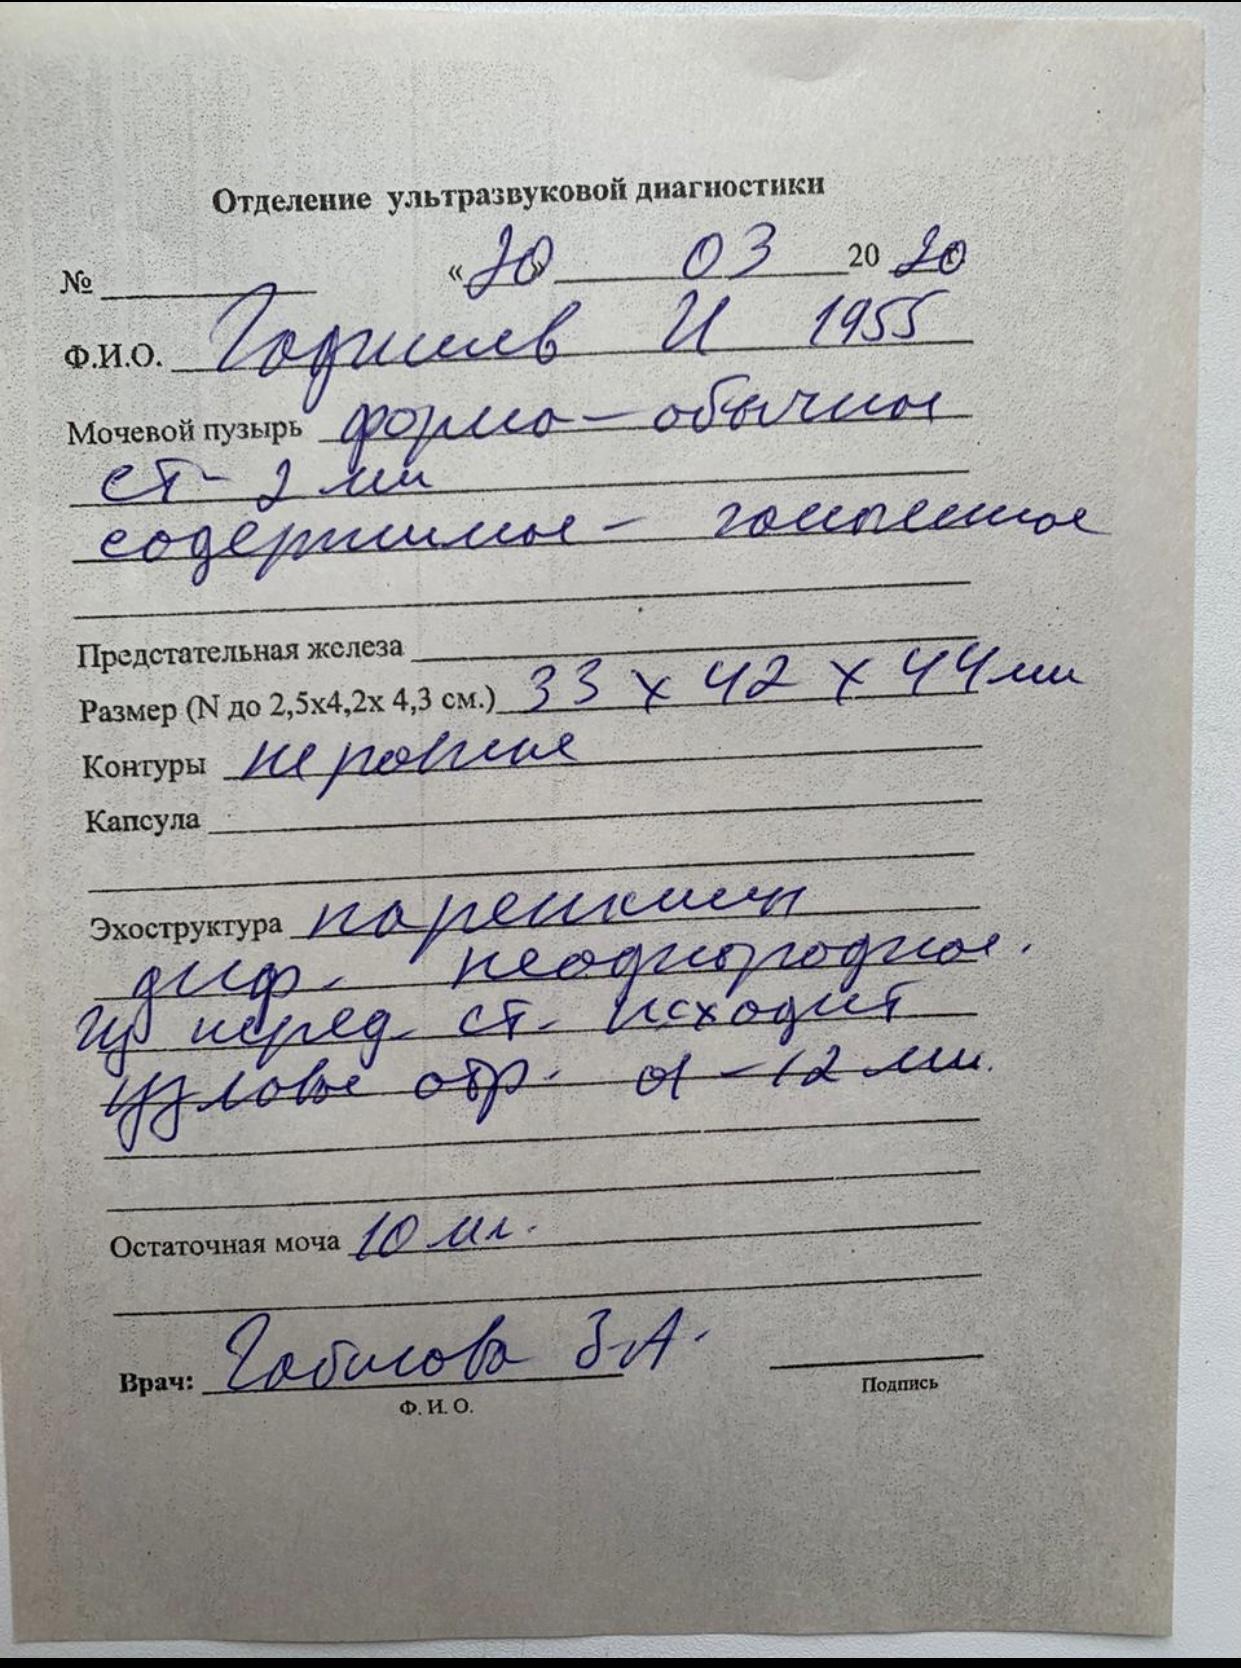 Отделение ультразвуковой диагностики
№ «20» 03 2020
Ф.И.О. И 1955
Мочевой пузырь форма – обычная
ст - 2 мм
содержимое – гомогенное
Предстательная железа
Размер (N до 2,5х4,2х 4,3 см.) 33 х 42 х 44 мм
Контуры не ровные
Капсула
Эхоструктура паренхимы
диф. неоднородная.
Из перед. ст. исходит
узловое обр. d – 12 мм.
Остаточная моча 10 мл.
Врач: З.А.
Ф. И. О. Подпись